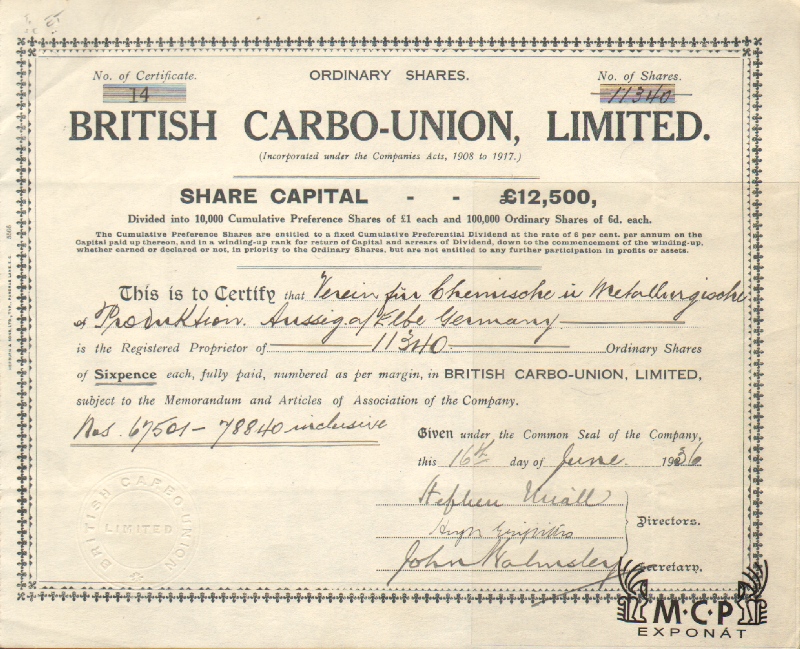 No. of Certificate.
ORDINARY SHARES.
No. of Shares.
14
11340
BRITISH CARBO-UNION, LIMITED.
(Incorporated under the Companies Acts, 1908 to 1917.)
SHARE CAPITAL - - £12,500,
Divided into 10,000 Cumulative Preference Shares of £1 each and 100,000 Ordinary Shares of 6d. each.
The Cumulative Preference Shares are entitled to a fixed Cumulative Preferential Dividend at the rate of 6 per cent. per annum on the
Capital paid up thereon, and in a winding-up rank for return of Capital and arrears of Dividend, down to the commencement of the winding-up,
whether earned or declared or not, in priority to the Ordinary Shares, but are not entitled to any further participation in profits or assets.
This is to Certify that Verein für Chemische u Metallurgische
of Produktion. Aussig a/Elbe Germany
is the Registered Proprietor of 11340 Ordinary Shares
of Sixpence each, fully paid, numbered as per margin, in BRITISH CARBO-UNION, LIMITED,
subject to the Memorandum and Articles of Association of the Company.
Nos. 67501 - 78840 inclusive
Given under the Common Seal of the Company,
this 16th day of June. 1936
Stephen Miall
Hugh Griffiths
Directors.
John Walmsley
Secretary.
BRITISH CARBO UNION
LIMITED
M·C·P
EXPONÁT